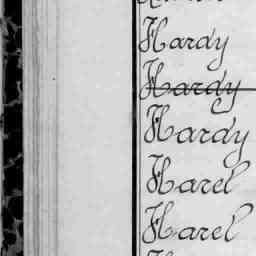 Hardy
Hardy
Hardy
Harel
Harel